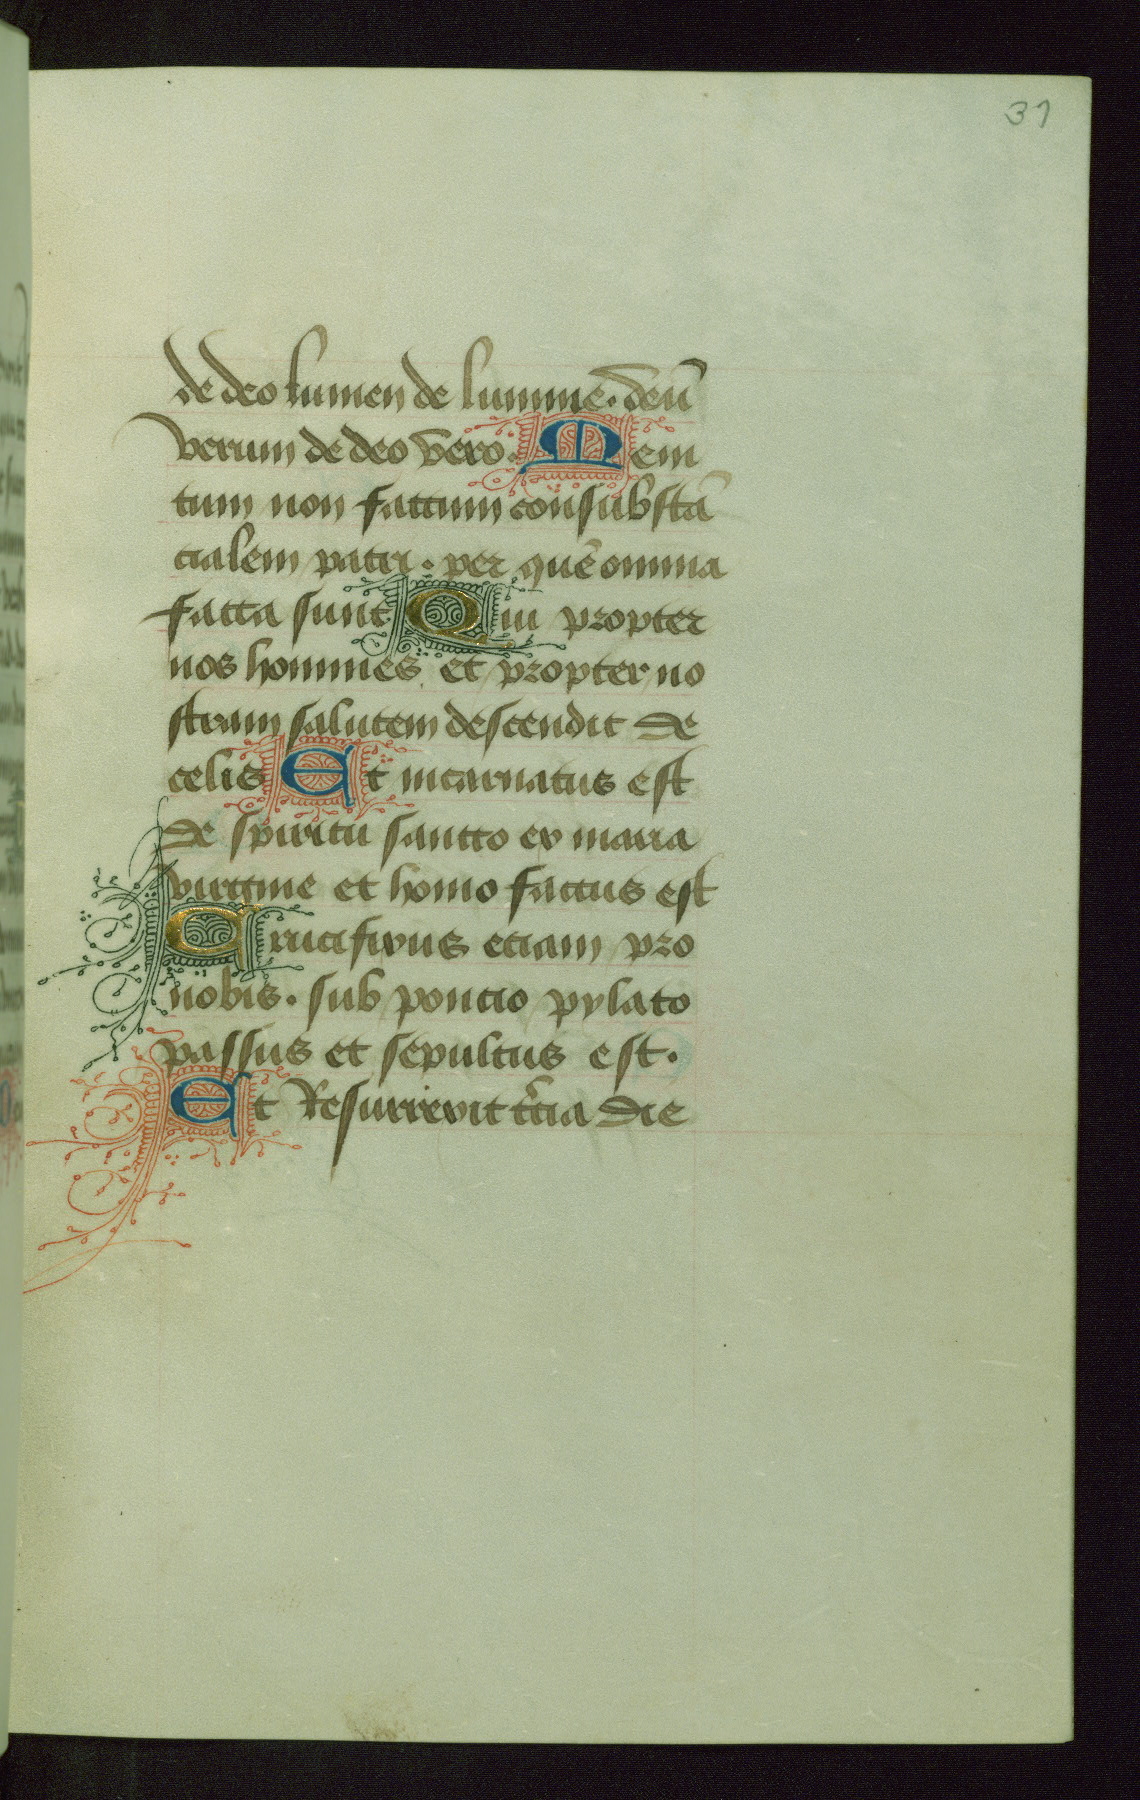 31
de deo lumen de lumine. deū
verum de deo vero. Geni
tum non factum consubstā
cialem patri. per quē omnia
facta sunt Qui propter
nos homines et propter no
stram salutem descendit de
celis Et incarnatus est
de spiritu sancto ex maria
virgine et homo factus est
Crucifixus eciam pro
nobis. sub poncio pylato
passus et sepultus est.
Et Resurrexit tēcia die